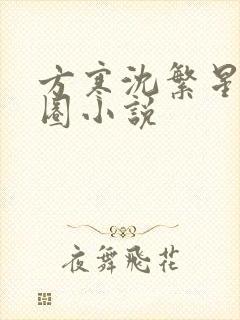 方寒沈繁星
圈小说
夜舞飛花